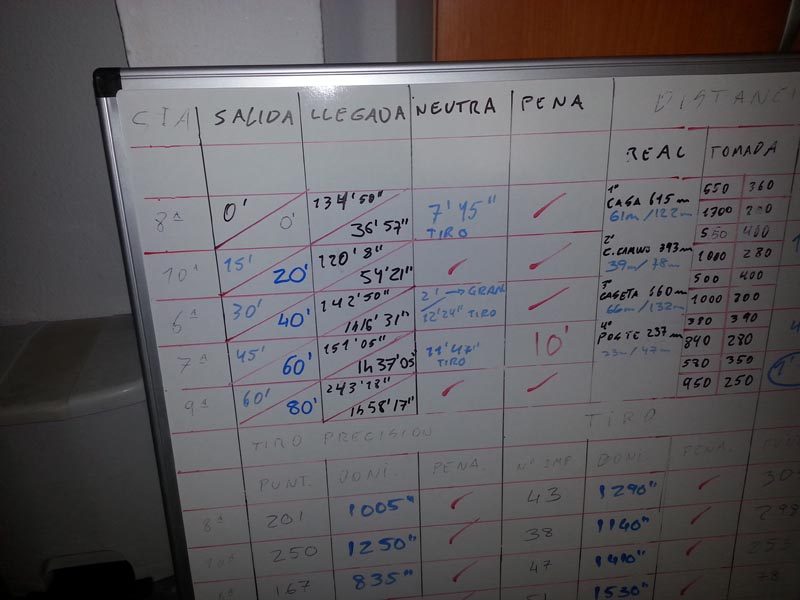 CIA SALIDA LLEGADA NEUTRA PENA DISTANCI
REAL TOMADA
8ª 0' 0' 134'50" 36'57" 7'45" TIRO
1º CASA 615 m 61m/122m 550 360
1700
10ª 15' 20' 120'8" 54'21"
2º C.CAMINO 393m 39m/78m 550 400
1000 280
6ª 30' 40' 142'50" 1h16'31" 2' → GRAN 12'24" TIRO
3º CASETA 660m 66m/132m 500 400
1000 300
7ª 45' 60' 151'05" 1h37'05" 11'47" TIRO 10'
4º POSTE 237m 23m/47m 380 390
840 280
9ª 60' 80' 1h58'17"
580 350
950 250
TIRO PRECISION TIRO
PUNT. BONI. PENA. Nº IMP BONI. PENA.
8ª 201 1005" 43 1290"
10ª 250 1250" 38 1140" 298
167 835" 47 1410"
1530" 78